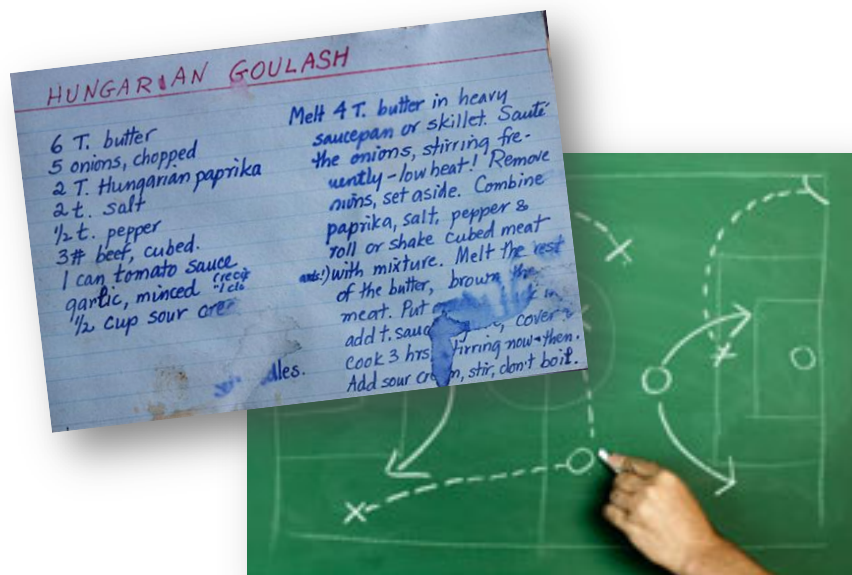 HUNGARIAN GOULASH
6 T. butter
5 onions, chopped
2 T. Hungarian paprika
2 t. salt
1/2 t. pepper
3# beef, cubed.
1 can tomato sauce
garlic, minced
1/2 cup sour
Melt 4 T. butter in heavy
saucepan or skillet. Sauté
the onions, stirring fre-
uently - low heat! Remove
nions, set aside. Combine
paprika, salt, pepper &
roll or shake cubed meat
with mixture. Melt the rest
of the butter, brown the
meat. Put
add t. cover &
cook 3 hrs, stirring now + then.
Add sour cream, stir, don't boil.